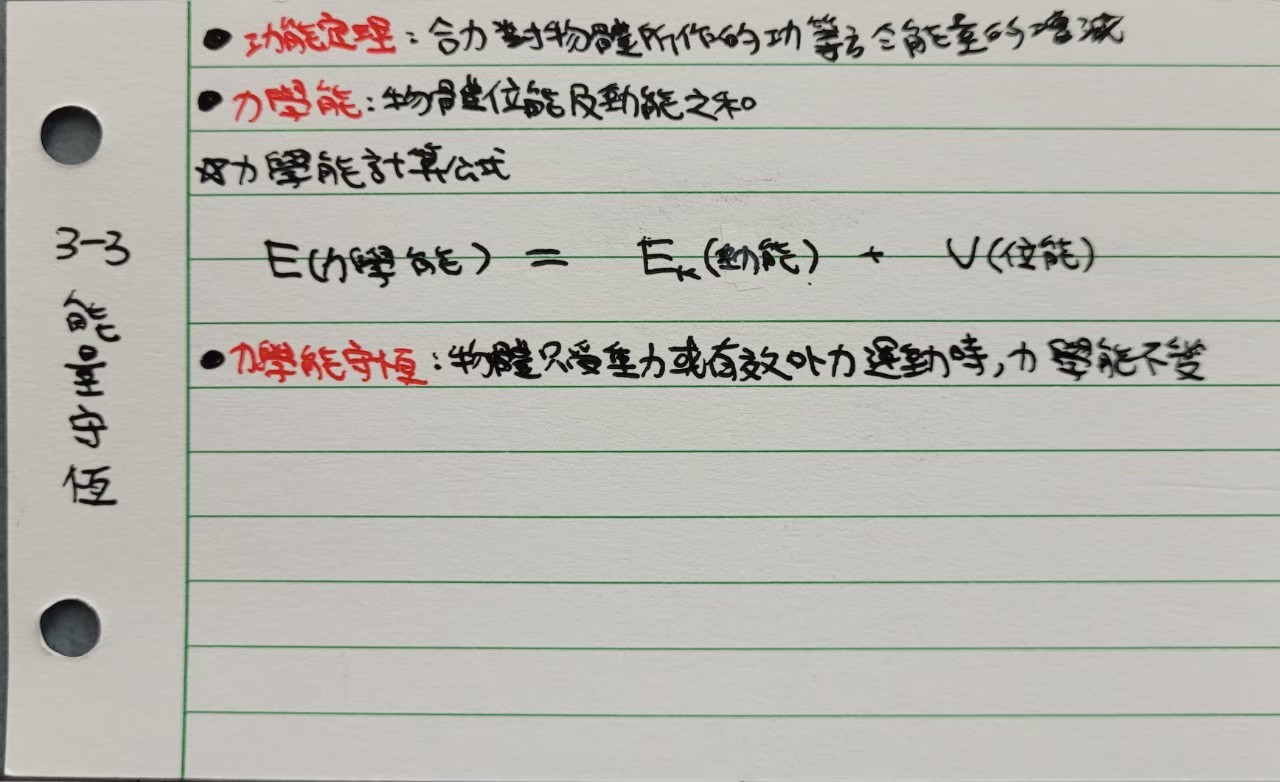 3-3 能量守恆
• 功能定理：合力對物體所作的功等於能量的增減
• 力學能：物體位能及動能之和。
☆力學能計算公式
E(力學能) = Eₖ(動能) + U(位能)
• 力學能守恆：物體只受重力或有效外力運動時，力學能不變